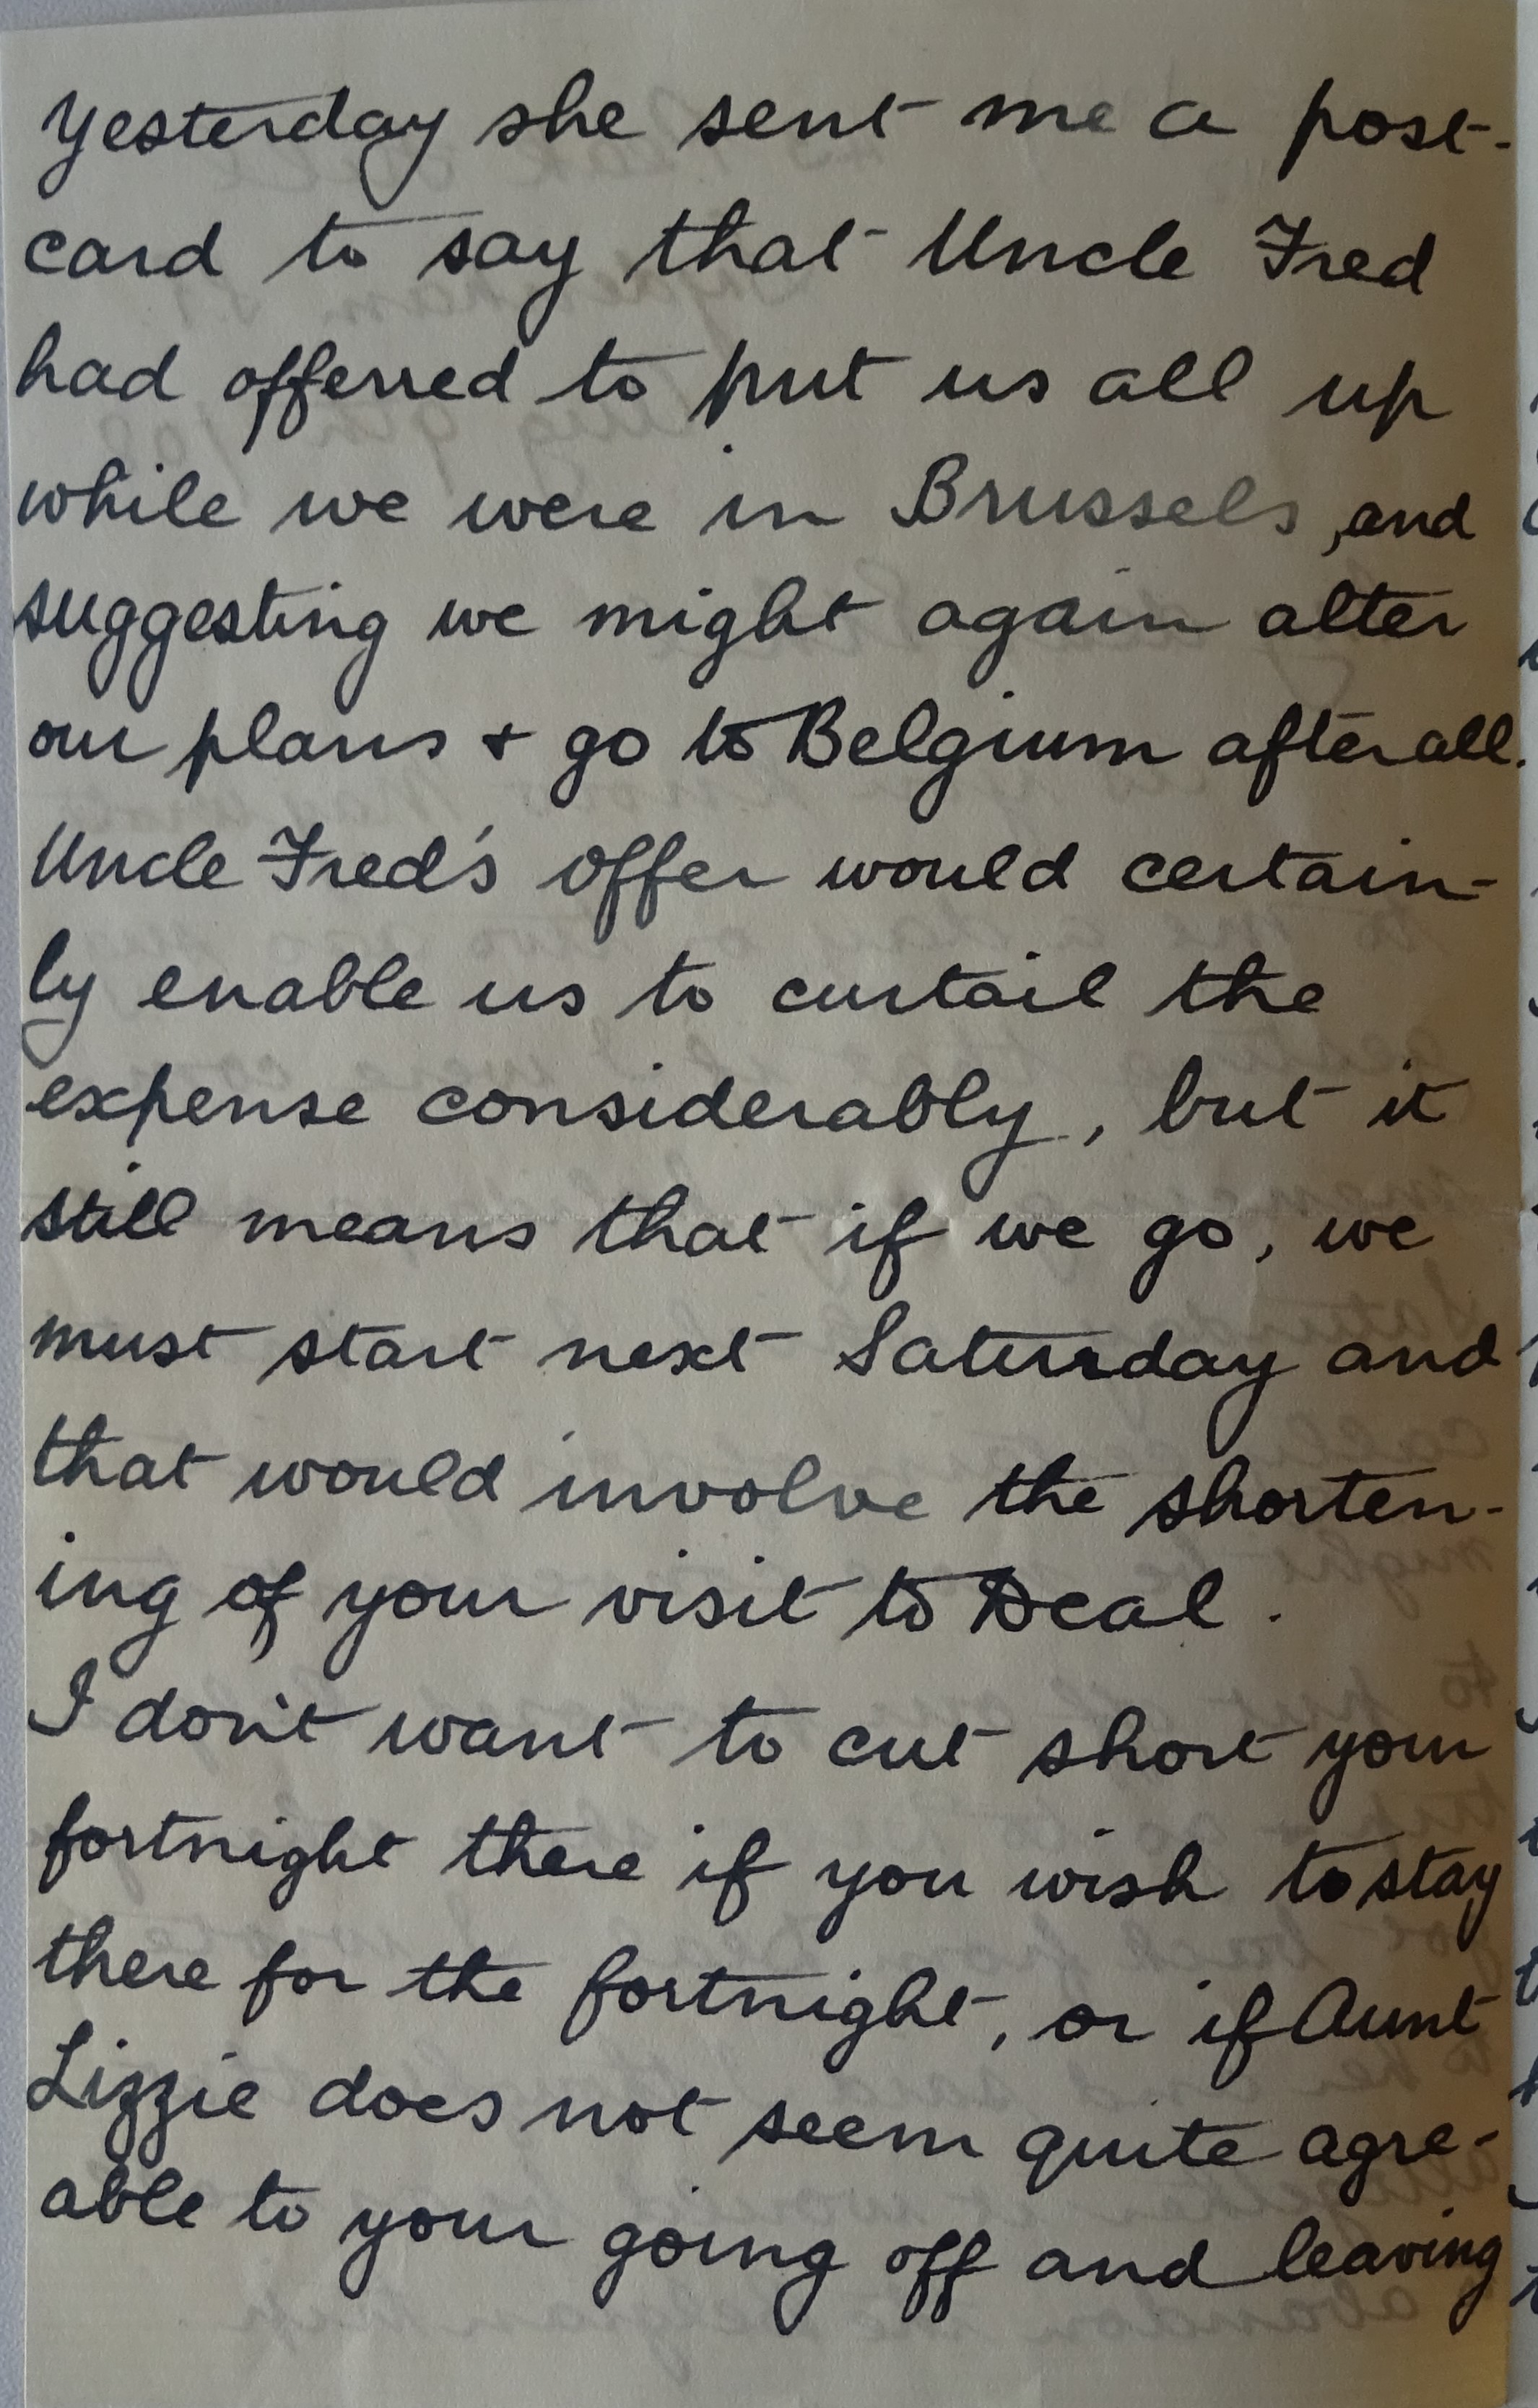 Yesterday she sent me a post-
card to say that Uncle Fred
had offerred to put us all up
while we were in Brussels, and
suggesting we might again alter
our plans + go to Belgium after all.
Uncle Fred's offer would certain-
ly enable us to curtail the
expense considerably, but it
still means that if we go, we
must start next Saturday and
that would involve the shorten-
ing of your visit to Deal.
I don't want to cut short your
fortnight there if you wish to stay
there for the fortnight, or if Aunt
Lizzie does not seem quite agre-
able to your going off and leaving